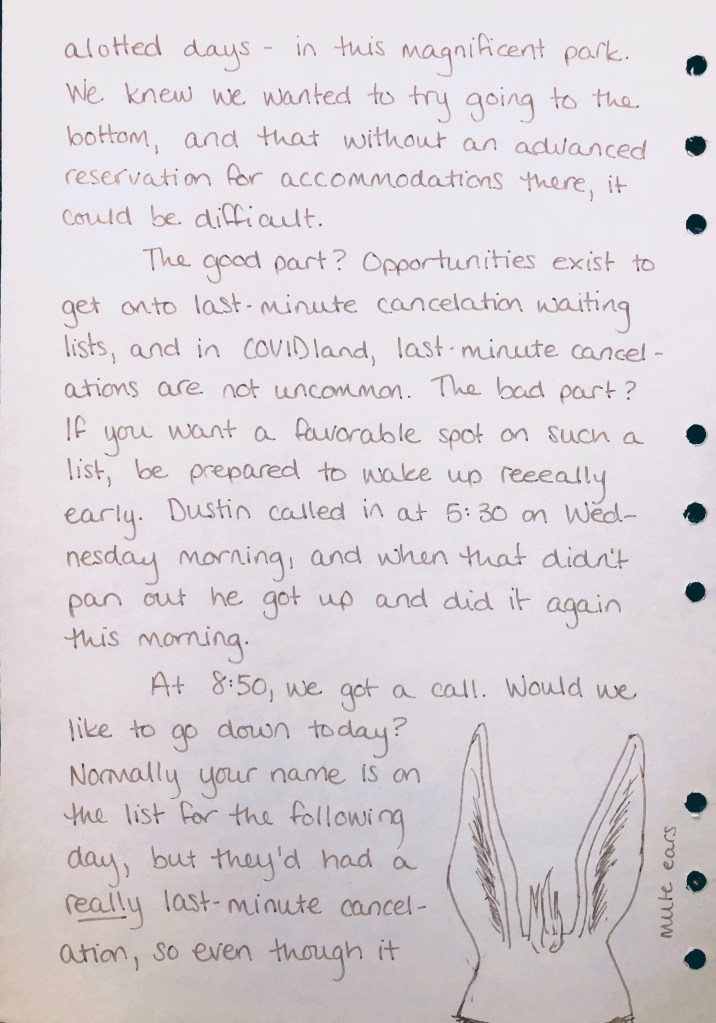 alotted days - in this magnificent park.
We knew we wanted to try going to the
bottom, and that without an advanced
reservation for accommodations there, it
could be difficult.
The good part? Opportunities exist to
get onto last-minute cancelation waiting
lists, and in COVIDland, last-minute cancel-
ations are not uncommon. The bad part?
If you want a favorable spot on such a
list, be prepared to wake up reeeally
early. Dustin called in at 5:30 on Wed-
nesday morning, and when that didn't
pan out he got up and did it again
this morning.
At 8:50, we got a call. Would we
like to go down today?
Normally your name is on
the list for the following
day, but they'd had a
really last-minute cancel-
ation, so even though it
mule ears